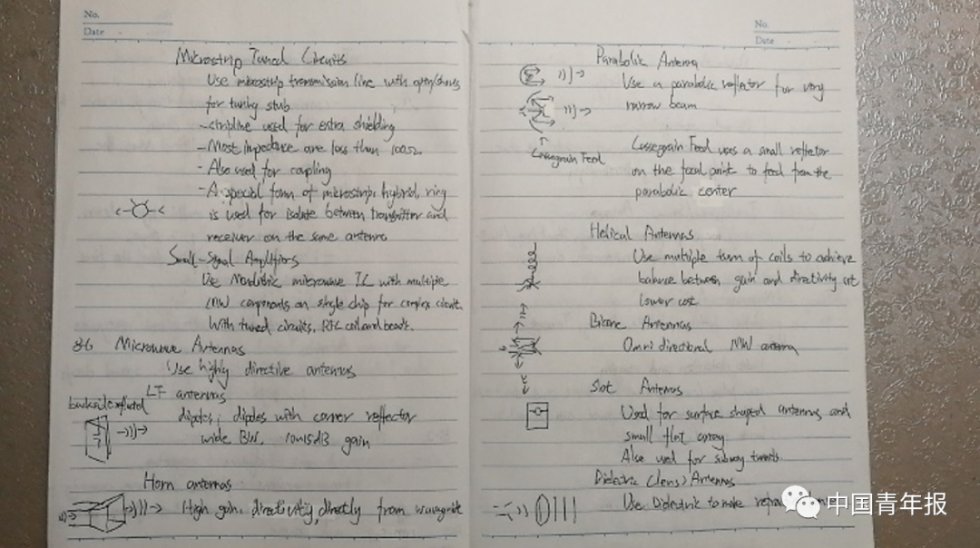 No.
Date
Microstrip Tuned Circuits
Use microstrip transmission line with open/shorts
for tuning stub
-stripline used for extra shielding
-Most impedance are less than 100Ω
- Also used for coupling
- A special form of microstrip, hybrid, ring
is used for isolate between transmitter and
receiver on the same antenna
Small-Signal Amplifiers
Use Monolithic microwave IC with multiple
MW components on single chip for complex circuit.
With tuned circuits, RFC coil and beads.
8.6 Microwave Antennas
Use highly directive antennas
LF antennas
dipoles, dipoles with corner reflector
wide BW, 10-15dB gain
Horn antennas
High gain, directivity, directly from waveguide
No.
Date
Parabolic Antenna
Use a parabolic reflector for very
narrow beam
Cassegrain Feed
Cassegrain Feed uses a small reflector
on the focal point to feed from the
parabolic center
Helical Antennas
Use multiple turn of coils to achieve
balance between gain and directivity at
lower cost
Bicone Antennas
Omnidirectional MW antenna
Slot Antennas
Used for surface shaped antenna, and
small flat array
Also used for subway tunnels
Dielectric (lens) Antennas
Use Dielectric to make
中国青年报